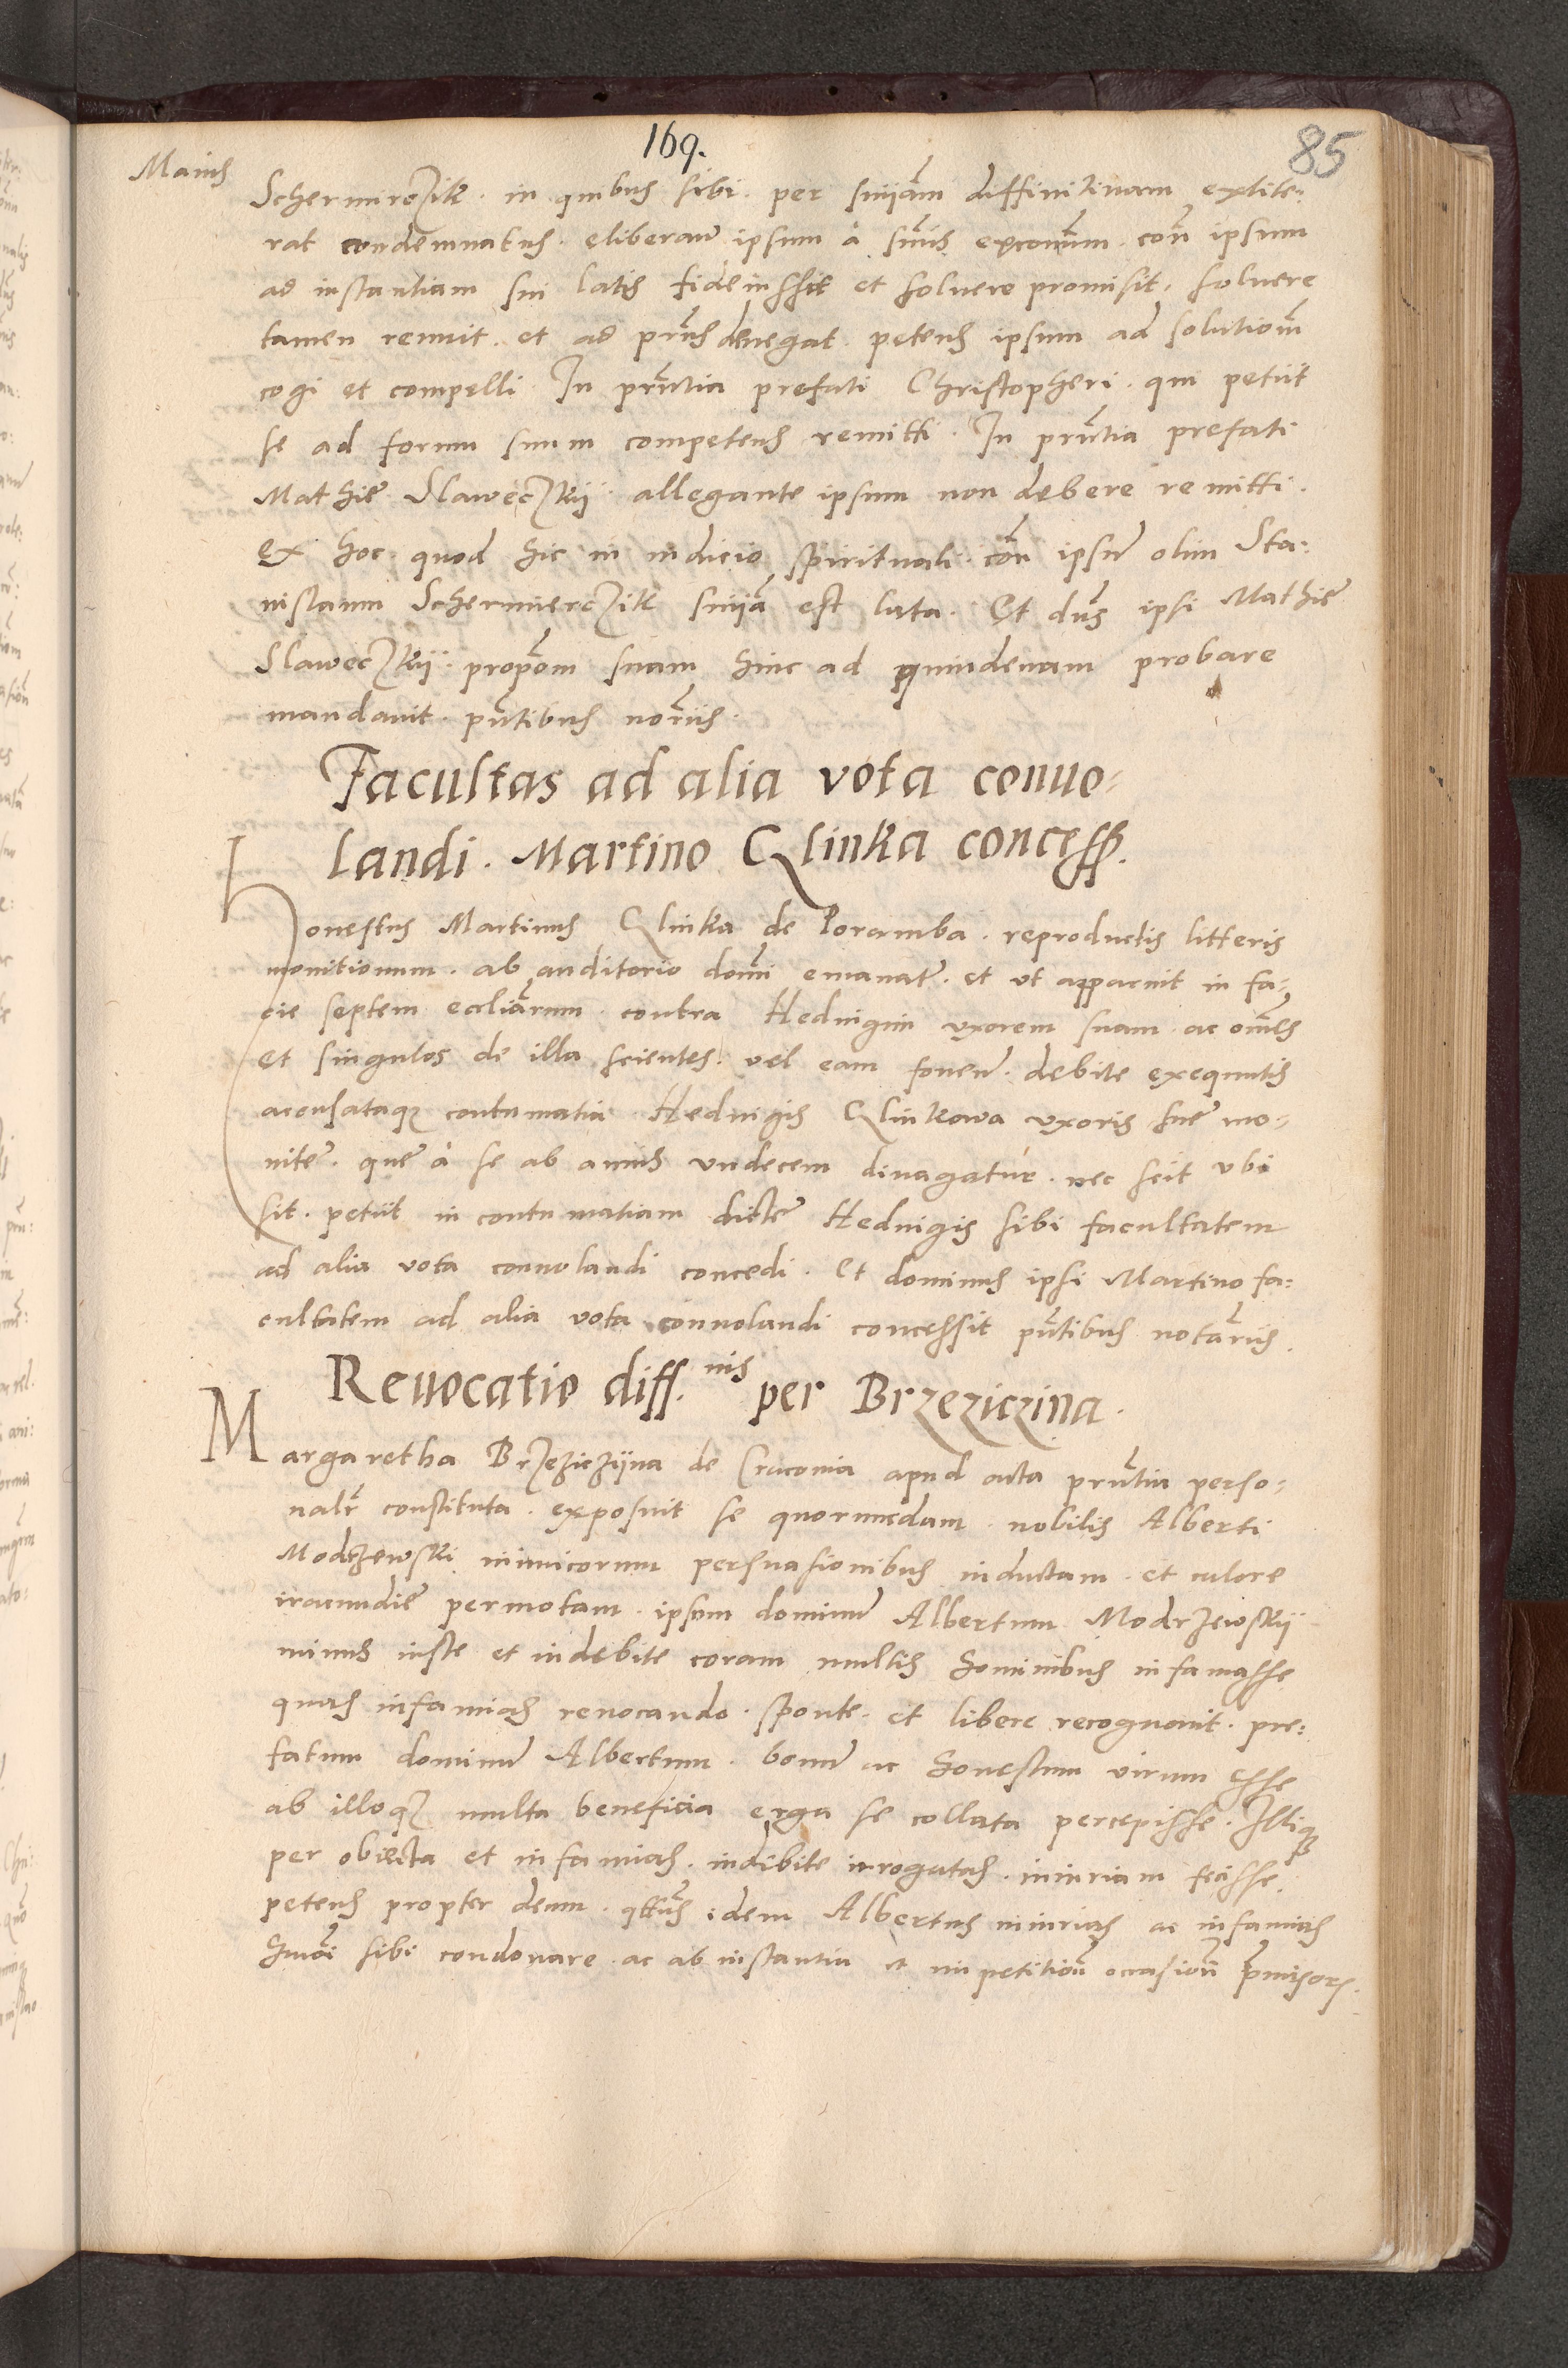 169.
85
Maius
Schermirczik. in quibus sibi. per sniiam diffinitivam extite:
rat condemnatus. eliberare ipsum à sniis excomm. con ipsum
ad instantiam sui latis fideiussit et solvere promisit. solvere
tamen renuit. et ad prns denegat. petens ipsum ad solutiom
cogi et compelli. In prntia prefati Christopheri. qui petiit
se ad forum suum competens remitti. In prntia prefati
Mathie Slaweczkij. allegante ipsum non debere remitti.
Ex hoc quod hic in iudicio spirituali. con ipsum olim Sta:
nislaum Schermierczik sniia est lata. Et dns ipsi Mathie
Slaweczkij. propom suam hinc ad quindenam probare
mandavit. pntibus noriis.
Facultas ad alia vota convo-
landi. Martino Glinka concess.
Honestus Martinus Glinka de Poramba. reproductis litteris
monitionum. ab auditorio domi emanatis. et ut apparuit in fa-
cie septem eccliarum contra Hedvigim uxorem suam ac omnes
et singulos de illa scientes. vel eam foven. debite exequutis
accusataque contumatia Hedvigis Glinkowa uxoris sue mo-
nite. que à se ab annis undecem divagatur. nec scit ubi
sit. petiit in contumatiam dicte Hedvigis sibi facultatem
ad alia vota convolandi concedi. Et dominus ipsi Martino fa:
cultatem ad alia vota convolandi concessit pntibus notariis.
Revocatio diff.nis per Brzeziczina.
Margaretha Brzezicziina de Cracovia apud acta prntia perso-
nalr constituta. exposuit se quorundam. nobilis Alberti
Modrzewski inimicorum persuasionibus inductam. et calore
iracundie permotam. ipsum dominum Albertum Modrzewskij
minus iuste et indebite coram multis hominibus infamasse
quas infamias revocando. sponte. et libere recognovit. pre:
fatum dominum Albertum. bonum ac honestum virum esse
ab illoque multa beneficia erga se collata percepisse. Illique
per obiecta et infamias. indibite irrogatas. iniuriam fecisse.
petens propter deum. qtus idem Albertus iniurias ac infamias
hmoi sibi condonare. ac ab instantia et impetitiom occasiom pmissors.